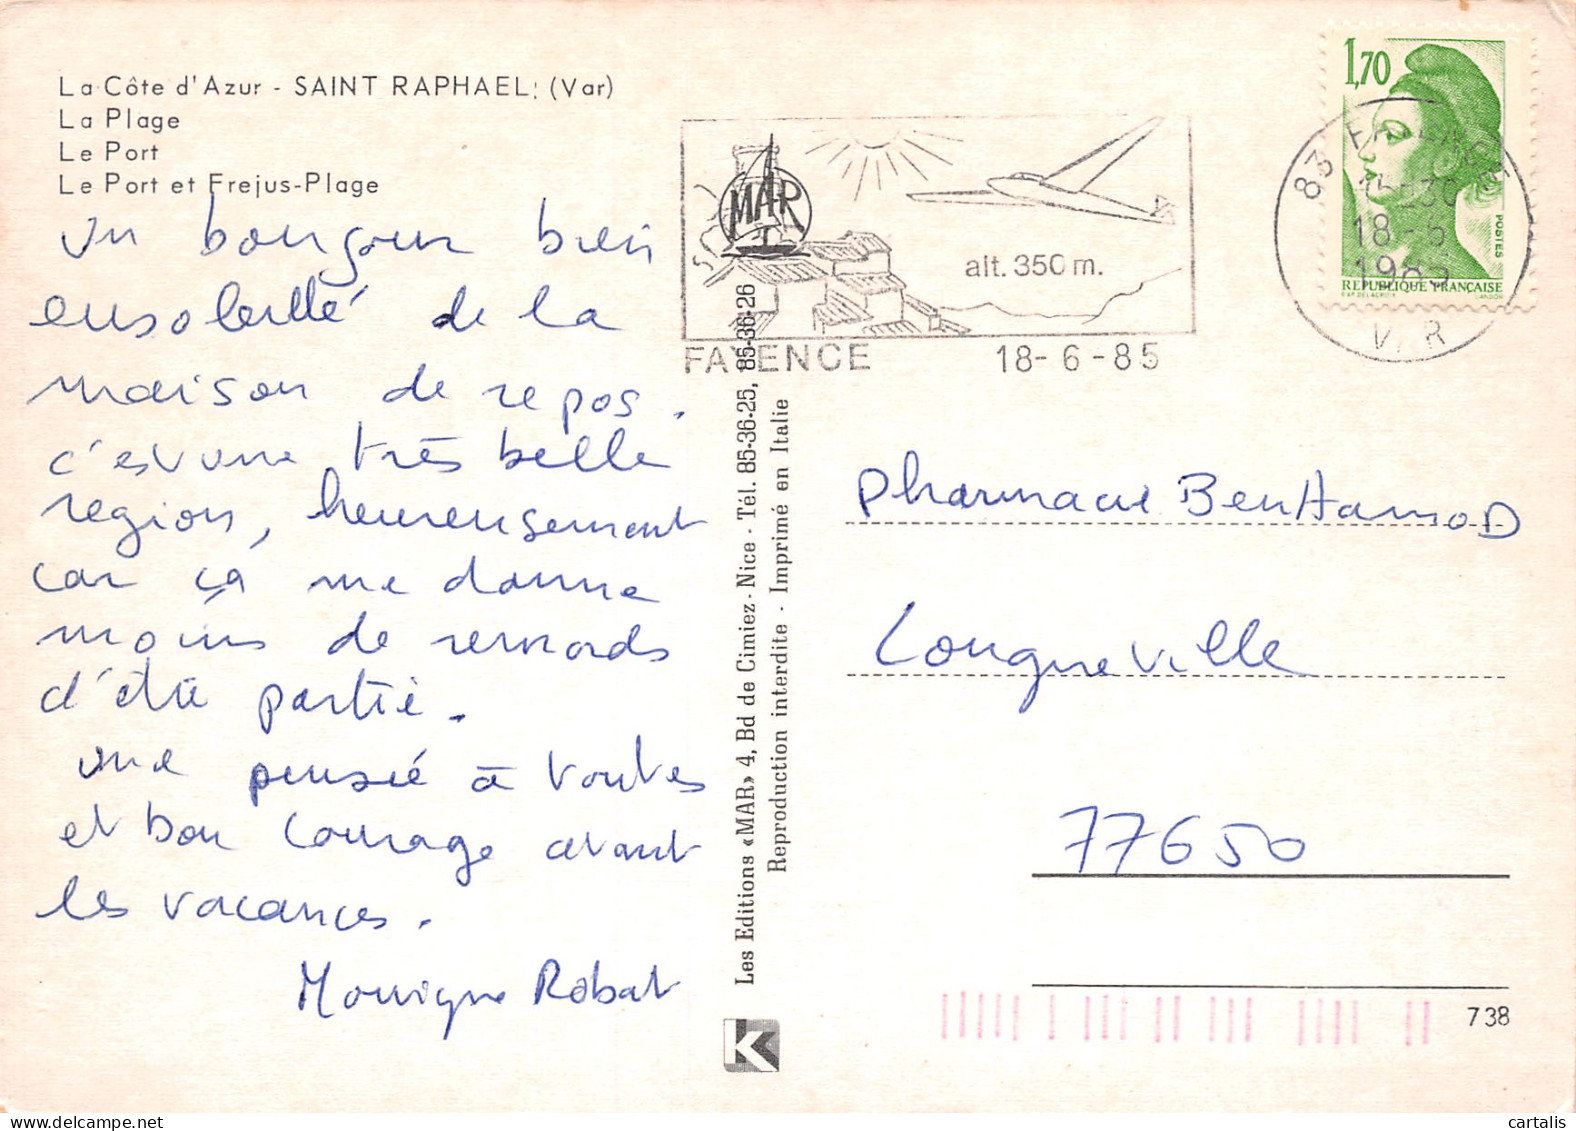 La Côte d'Azur - SAINT RAPHAEL: (Var)
La Plage
Le Port
Le Port et Frejus-Plage
un bonjour bien
ensoleillé de la
maison de repos.
c'est une très belle
region, heureusement
car ça me donne
moins de remords
d'être partie.
une pensée à toutes
et bon courage avant
les vacances.
Monique Robat
MAR
alt. 350 m.
FAYENCE 18-6-85
1,70
POSTES
REPUBLIQUE FRANÇAISE
D'AP. DELACROIX GANDON
83 FAYENCE
15-30
18-6
1985
VAR
Les Editions «MAR» 4, Bd de Cimiez - Nice - Tél. 85-36-25, 85-36-26
Reproduction interdite - Imprimé en Italie
Pharmacie BenHamoD
Longueville
77650
K
738
cartalis
delcampe.net